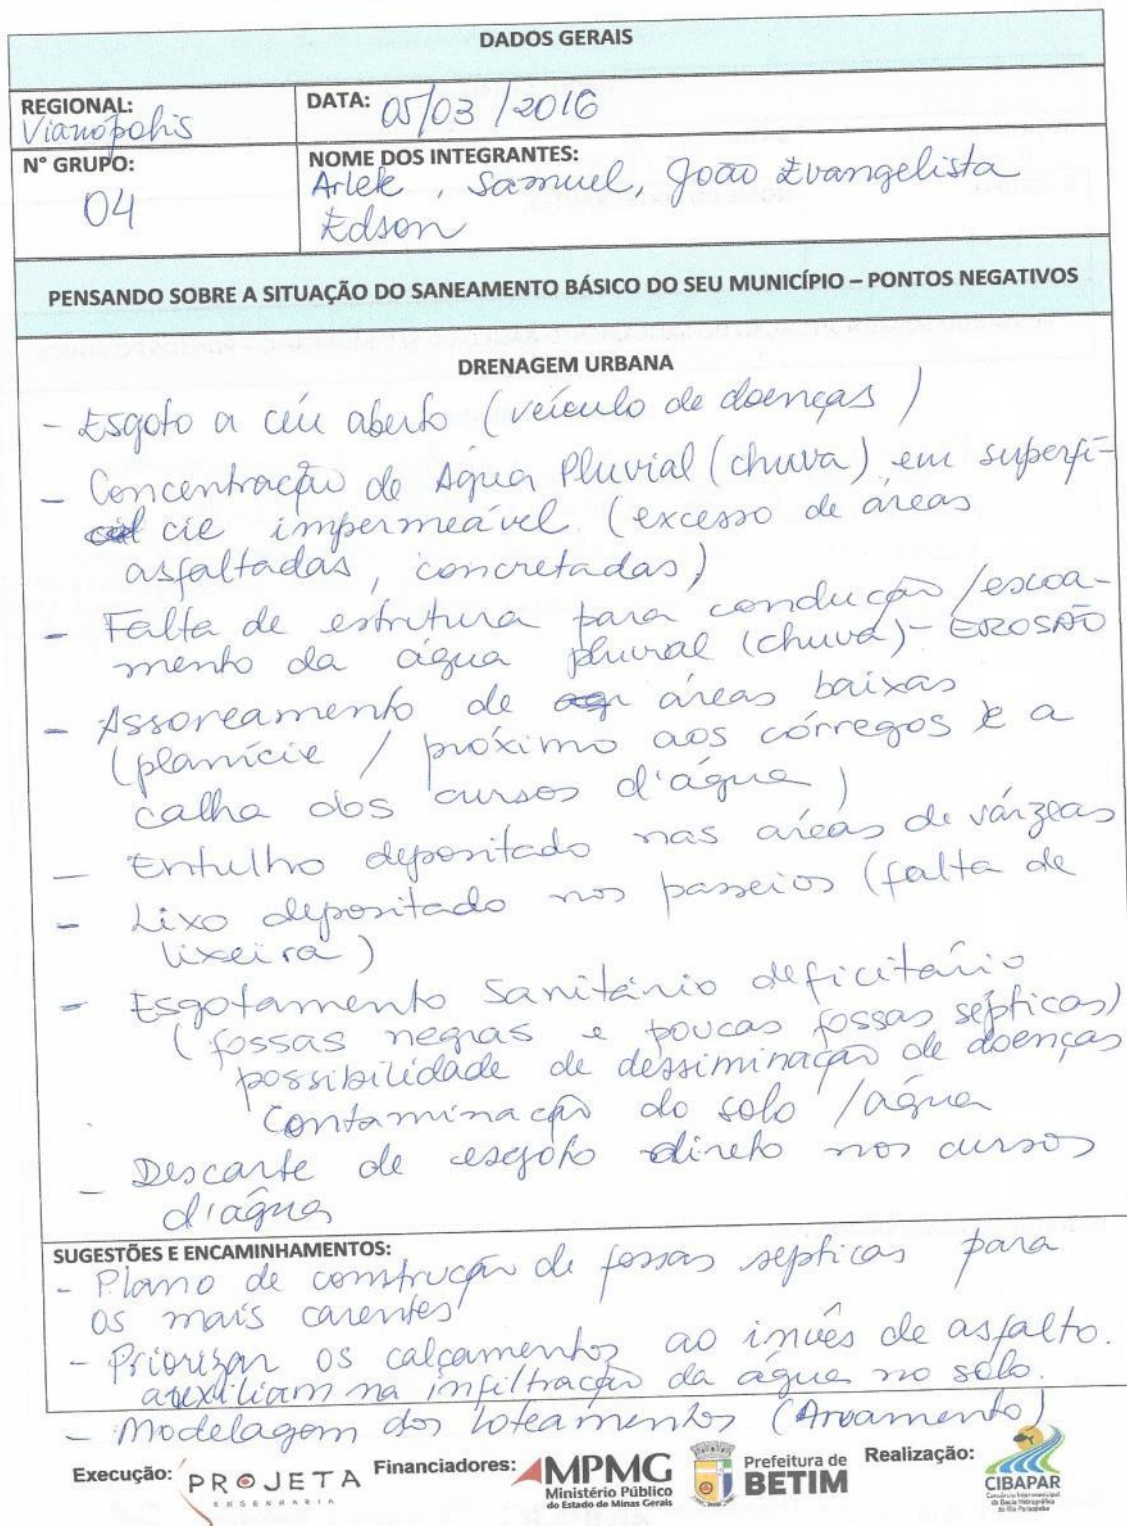 DADOS GERAIS
REGIONAL:
Vianópolis
DATA: 05/03/2016
N° GRUPO:
04
NOME DOS INTEGRANTES:
Arlek, Samuel, João Evangelista
Edson
PENSANDO SOBRE A SITUAÇÃO DO SANEAMENTO BÁSICO DO SEU MUNICÍPIO – PONTOS NEGATIVOS
DRENAGEM URBANA
- Esgoto a céu aberto (veículo de doenças)
- Concentração de Água Pluvial (chuva) em superfí-
cie impermeável. (excesso de áreas
asfaltadas, concretadas)
- Falta de estrutura para condução/escoa-
mento da água pluvial (chuva) - EROSÃO
- Assoreamento de áreas baixas
(planície / próximo aos córregos e a
calha dos cursos d'água)
- Entulho depositado nas áreas de várzeas
- Lixo depositado nos passeios (falta de
lixeira)
- Esgotamento Sanitário deficitário
(fossas negras e poucas fossas sépticas)
possibilidade de dessiminação de doenças
Contaminação do solo / água
- Descarte de esgoto direto nos cursos
d'água
SUGESTÕES E ENCAMINHAMENTOS:
- Plano de construção de fossas septicas para
os mais carentes
- Priorizar os calçamentos ao invês de asfalto.
auxiliam na infiltração da água no solo.
- Modelagem dos loteamentos (Aruamento)
Execução: PROJETA
ENGENHARIA
Financiadores: MPMG
Ministério Público
do Estado de Minas Gerais
Prefeitura de
BETIM
Realização:
CIBAPAR
Consórcio Intermunicipal
da Bacia Hidrográfica
do Rio Paraopeba